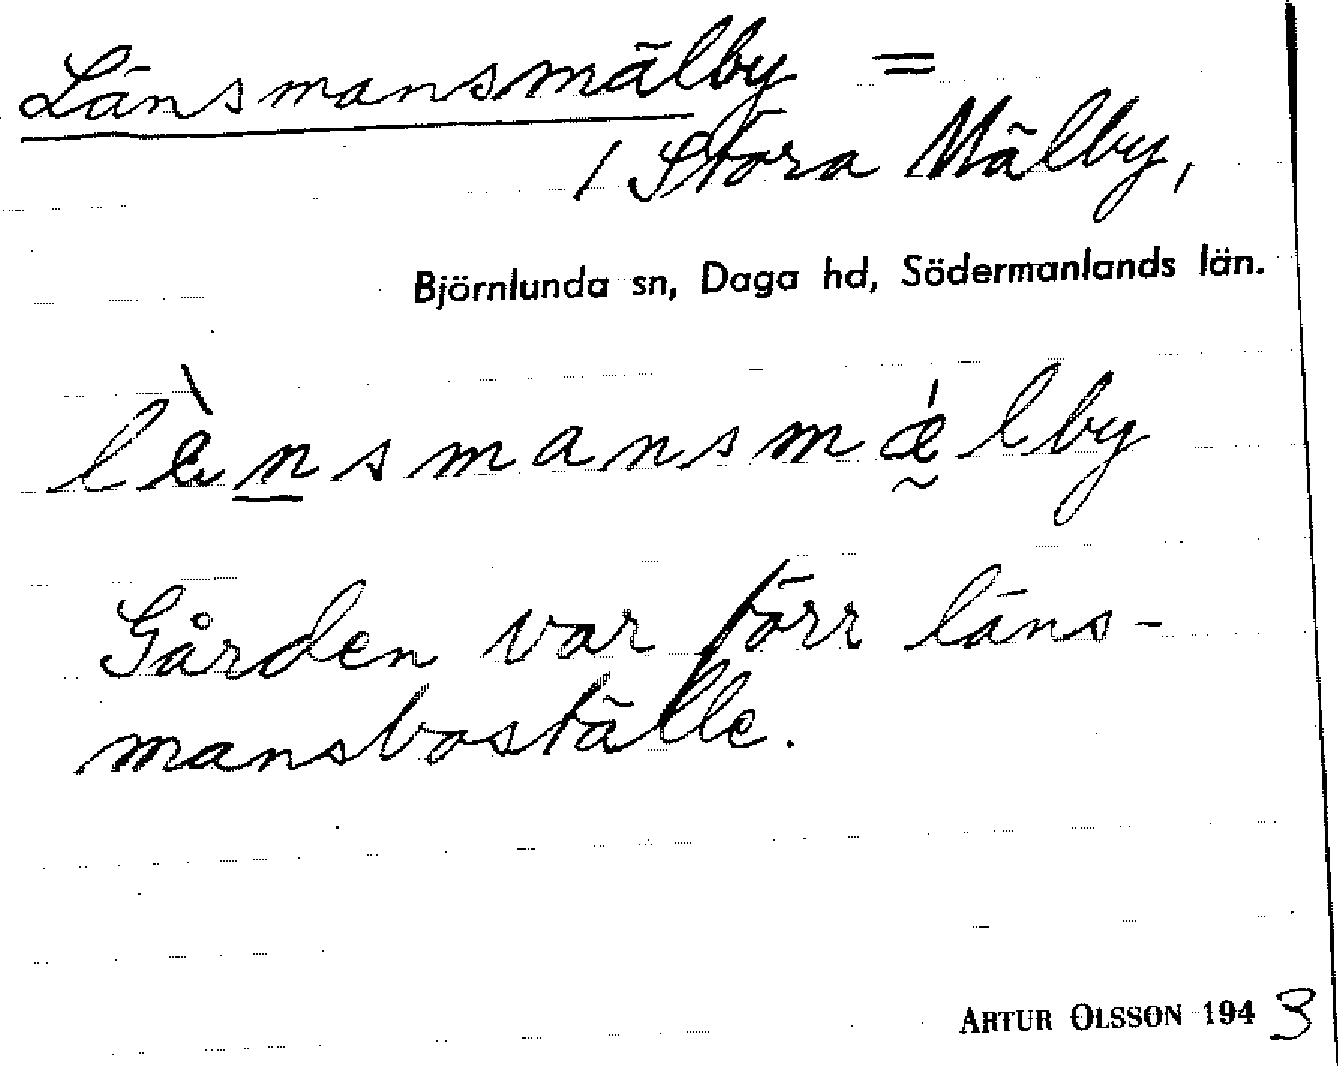 Länsmansmälby =
/ Stora Mälby,
Björnlunda sn, Daga hd, Södermanlands län.
lènsmansmǽlby
Gården var förr läns-
mansboställe.
ARTUR OLSSON 1943